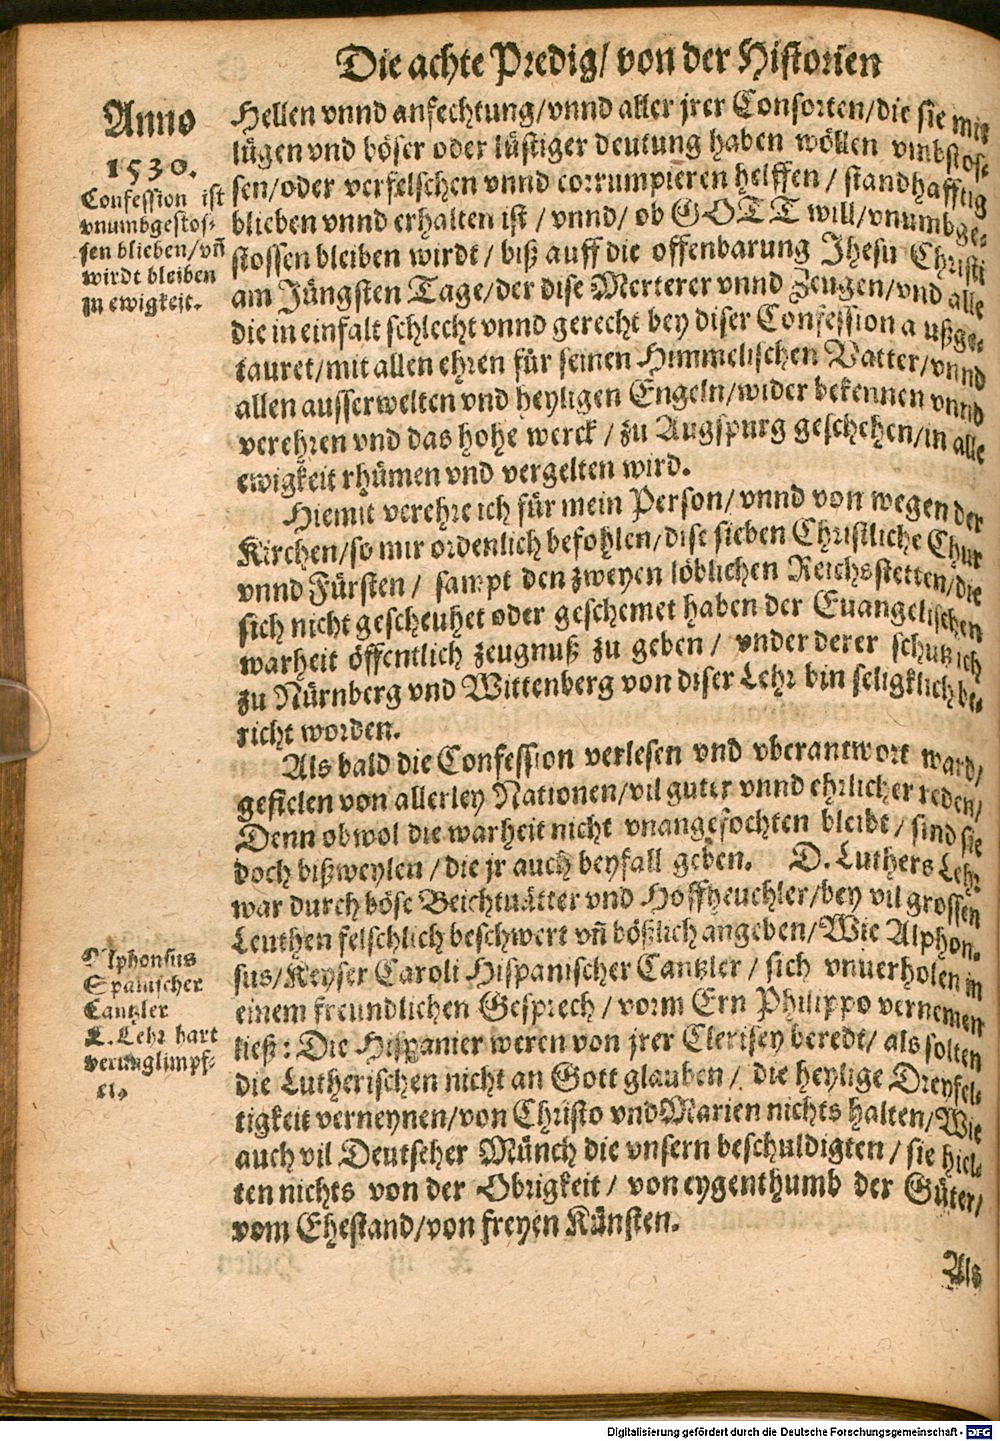 Die achte Predig/ von der Historien
Anno
1530.
Confession ist
vnumbgestos-
sen blieben/vñ
wirdt bleiben
zu ewigkeit.
Hellen vnnd anfechtung/vnnd aller jrer Consorten/die sie mit
lügen vnd böser oder lüstiger deutung haben wöllen vmbstos-
sen/oder verfelschen vnnd corrumpieren helffen / standhafftig
blieben vnnd erhalten ist / vnnd/ ob GOTT will/vnumbge-
stossen bleiben wirdt/ biß auff die offenbarung Jhesu Christi
am Jüngsten Tage/der dise Merterer vnnd Zeugen/vnd alle
die in einfalt schlecht vnnd gerecht bey diser Confession außge-
tauret/mit allen ehren für seinen Himmelischen Vatter/vnnd
allen ausserwelten vnd heyligen Engeln/wider bekennen vnnd
verehren vnd das hohe werck / zu Augspurg geschehen/in alle
ewigkeit rhümen vnd vergelten wird.
Hiemit verehre ich für mein Person/ vnnd von wegen der
Kirchen/so mir ordenlich befohlen/dise sieben Christliche Chur
vnnd Fürsten / sampt den zweyen löblichen Reichsstetten/die
sich nicht gescheuhet oder geschemet haben der Euangelischen
warheit öffentlich zeugnuß zu geben / vnder derer schutz ich
zu Nürnberg vnd Wittenberg von diser Lehr bin seligklich be-
richt worden.
Als bald die Confession verlesen vnd vberantwort ward/
gefielen von allerley Nationen/vil guter vnnd ehrlicher reden/
Denn obwol die warheit nicht vnangefochten bleibt / sind sie
doch bißweylen / die jr auch beyfall geben. D. Luthers Lehr
war durch böse Beichtuätter vnd Hoffheuchler/bey vil grossen
Leuthen felschlich beschwert vñ bößlich angeben/Wie Alphon-
sus/Keyser Caroli Hispanischer Cantzler / sich vnuerholen in
einem freundlichen Gesprech / vorm Ern Philippo vernemen
ließ: Die Hispanier weren von jrer Clerisey beredt/ als solten
die Lutherischen nicht an Gott glauben / die heylige Dreyfel-
tigkeit verneynen/von Christo vnd Marien nichts halten/Wie
auch vil Deutscher Münch die vnsern beschuldigten / sie hiel-
ten nichts von der Obrigkeit / von eygenthumb der Güter/
vom Ehestand/von freyen Künsten.
Alphonsus
Spanischer
Cantzler
L. Lehr hart
verunglimpf-
Als
Digitalisierung gefördert durch die Deutsche Forschungsgemeinschaft - DFG